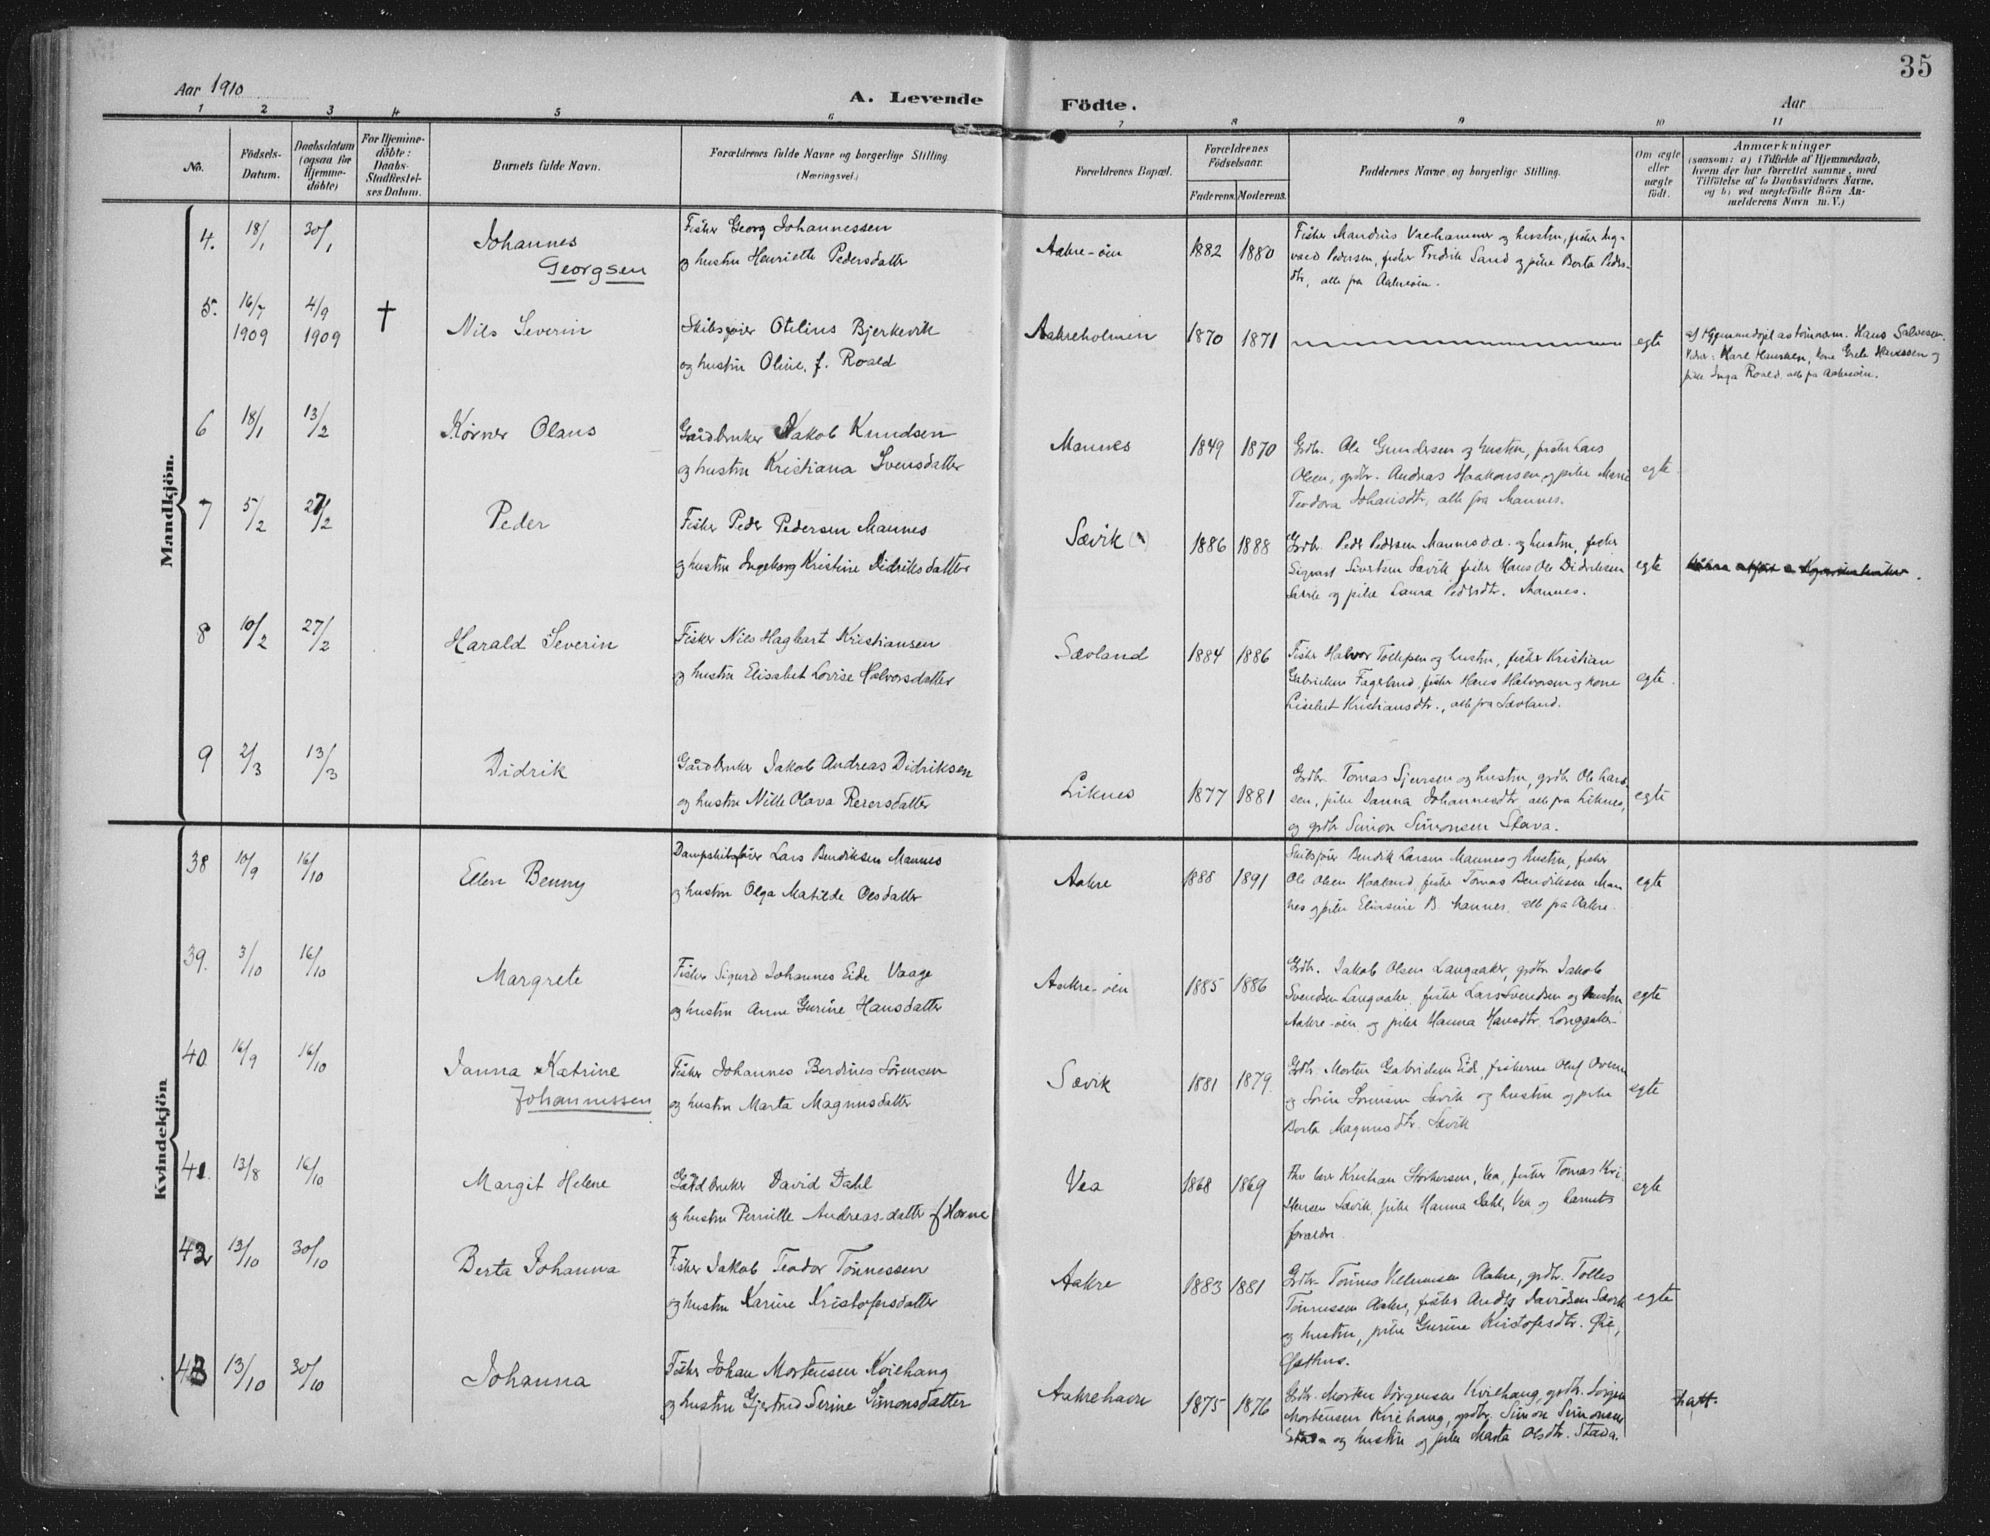 35
Aar 1910
A. Levende Födte.
Aar
1 2 3 4 5 6 7 8 9 10 11
No.
Födsels-
Datum.
Daabsdatum
(ogsaa for
Hjemme-
döbte)
For Hjemme-
döbte:
Daabs-
Stadfæstel-
ses Datum.
Barnets fulde Navn.
Forældrenes fulde Navne og borgerlige Stilling.
(Næringsvei.)
Forældrenes Bopæl.
Forældrenes
Födselsaar.
Faderens. Moderens.
Faddernes Navne og borgerlige Stilling.
Om ægte
eller
uægte
födt.
Anmærkninger
(saasom: a) i Tilfælde af Hjemmedaab,
hvem der har forrettet samme, med
Tilföielse af to Daabsvidners Navne,
og b) ved uægtefödte Börn An-
melderens Navn m. V.)
Mandkjön.
4. 18/1 30/1 Johannes
Georgsen
Fisker Georg Johannessen
og hustru Henriette Pedersdatter
Aakre-öen 1882 1880
Fisker Mandius Vaehammer og hustru, fisker Ing-
vald Pedersen, fisker Fredrik Sand og pike Berta Peders-
dtr, alle fra Aakreöen.
5. 16/7 1909 4/9 1909 † Nils Severin
Skibsfører Otelius Bjerkevik
og hustru Oline, f. Roald
Aakreholmen 1870 1871 egte
Hans Salvesen.
Vidner: Karl Hansen, kone Grete Hanssen og
pike Inga Roald, alle fra Aakreöen.
6 18/1 13/2 Kørner Olaus
Gårdbruker Jakob Knudsen
og hustru Kristiana Svensdatter
Mannes 1849 1870
Grdbr. Ole Gundersen og hustru, fisker Lars
Olsen, grdbr. Andreas Haakonsen og pike Marie
Teodora Johansdtr, alle fra Mannes.
egte
7 5/2 27/2 Peder
Fisker Peder Pedersen Mannes
og hustru Ingeborg Kristine Didriksdatter
Sævik 1886 1888
Grdbr. Peder Pedersen Mannes d.æ. og hustru, fisker
Sigvart Sivertsen Sævik, fisker Hans Ole Didriksen
Sævik og pike Laura Pedersdtr. Mannes.
egte
8 10/2 27/2 Harald Severin
Fisker Nils Hagbart Kristiansen
og hustru Elisabet Lovise Halvorsdatter
Sævland 1884 1886
Fisker Halvor Tollefsen og hustru, fisker Kristian
Gabrielsen Fageland, fisker Hans Halvorsen og kone
Lisebet Kristiansdtr., alle fra Sævland.
egte.
9 2/3 13/3 Didrik
Gårdbruker Jakob Andreas Didriksen
og hustru Nille Olava Reiersdatter
Liknes 1877 1881
Grdbr. Tomas Sjursen og hustru, grdbr Ole Lars-
sen, pike Janna Johannesdtr, alle fra Liknes,
og grdbr Simon Simonsen Stava.
egte
Kvindekjön
38 10/9 16/10 Ellen Benny
Dampskibsfører Lars Bendiksen Mannes
og hustru Olga Matilde Olsdatter
Aakre 1888 1891
Skibsfører Bendik Larsen Mannes og hustru, fisker
Ole Olsen Haaland, fisker Tomas Bendiksen Man-
nes og pike Elisine B. Mannes, alle fra Aakre.
egte
39. 3/10 16/10 Margrete
Fisker Sigurd Johannes Eide Vaage
og hustru Anne Gurine Hansdatter
Aakre-öen 1885 1886
Grdbr. Jakob Olsen Langaaker, grdbr Jakob
Svendsen Langaaker, fisker Lars Svendsen og hustru
Aakre-öen og pike Hanna Hansdtr. Langaaker
egte
40 16/9 16/10 Janna Katrine
Johannessen
Fisker Johannes Berdines Sørensen
og hustru Marta Magnusdatter
Sævik 1881 1879.
Grdbr. Morten Gabrielsen Eide, fiskerne Oluf
og Sørin Sørensen Sævik og hustru og pike
Berta Magnusdtr. Sævik
egte
41. 13/8 16/10 Margit Helene
Gårdbruker David Dahl
og hustru Pernille Andreasdatter f Horne
Vea 1868 1869
Kristian Storkersen, Vea, fisker Tomas Kri-
stensen Sævik, pike Hanna Dahl, Vea og barnets
forældre.
egte
42 13/10 30/10 Berta Johanna
Fisker Jakob Teodor Tönnessen
og hustru Karine Kristofersdatter
Aakre 1883 1881
Grdbr. Tönnes Aakre, grdbr. Tolles
Tönnessen Aakre, fisker Andrs Davidsen Sævik
og hustru, pike Gurine Kristofersdtr. Øie,
egte
43 13/10 30/10 Johanna
Fisker Johan Mortensen Kviehang
og hustru Gjertrud Serine Simonsdatter
Aakrehavn 1875 1876
Grdbr. Morten Jörgensen Kviehang, grdbr. Jörgen
Mortensen Kviehang, grdbr. Simon Simonsen
Stava og hustru og pike Marta Olsdtr. Stava.